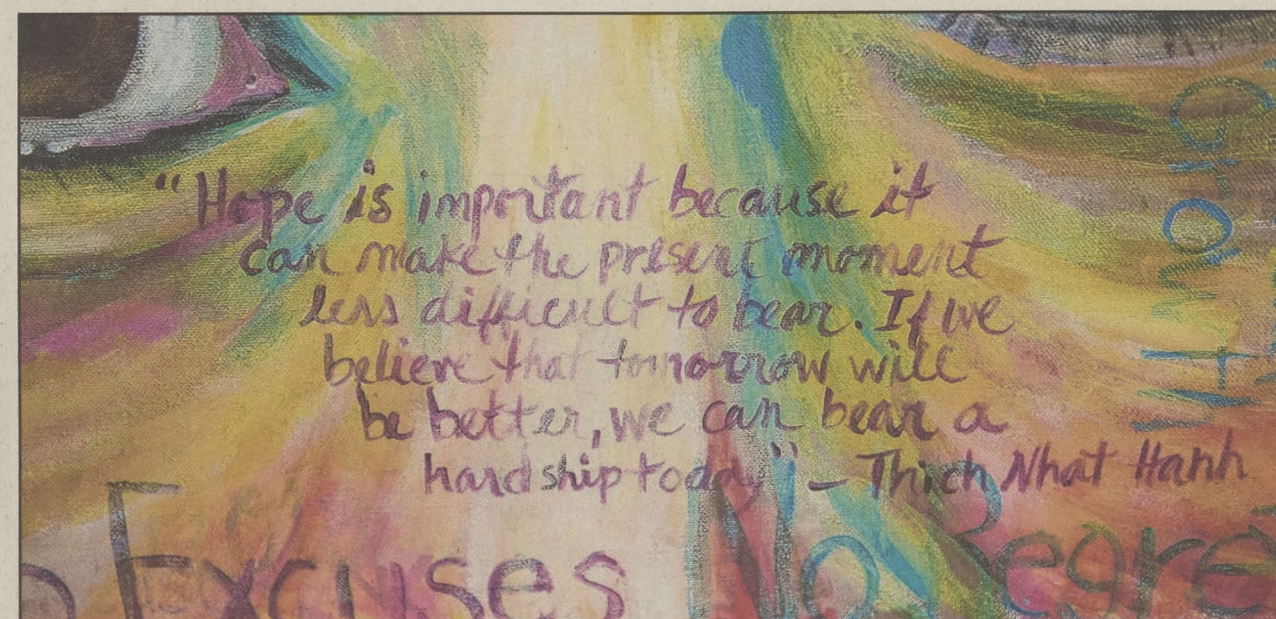 "Hope is important because it
can make the present moment
less difficult to bear. If we
believe that tomorrow will
be better, we can bear a
hardship today" – Thich Nhat Hanh
Excuses No Regre
Growth